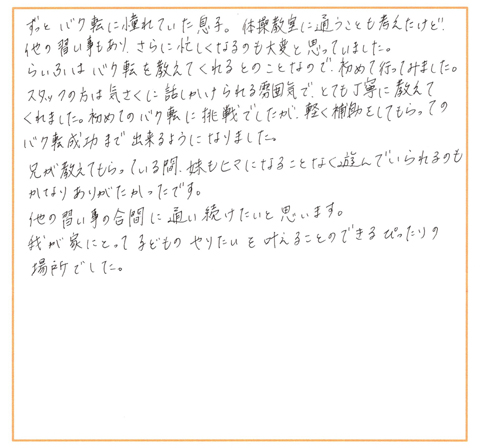 ずっと バク転に憧れていた息子。体操教室に通うことも考えたけど
他の習い事もあり、さらに忙しくなるのも大変と思っていました。
らいふはバク転を教えてくれるとのことなので、初めて行ってみました。
スタッフの方は気さくに話しかけられる雰囲気で、とても丁寧に教えて
くれました。初めてのバク転に挑戦でしたが、軽く補助をしてもらっての
バク転成功まで出来るようになりました。
兄が教えてもらっている間、妹もヒマになることなく遊んでいられるのも
かなりありがたかったです。
他の習い事の合間に通い続けたいと思います。
我が家にとって子どものやりたいを叶えることのできるぴったりの
場所でした。